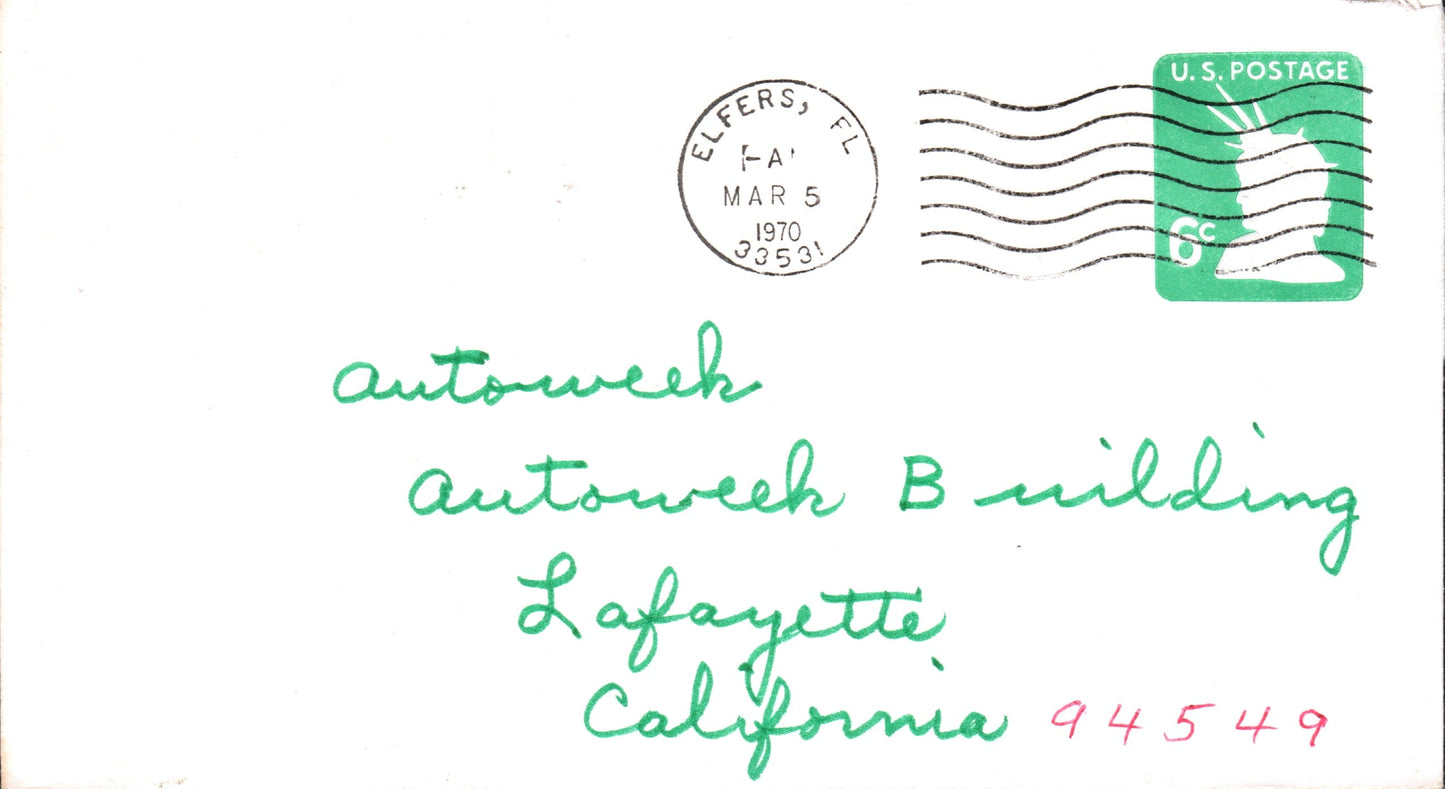 U.S. POSTAGE
ELFERS, FL
MAR 5
1970
33531
6c
autoweek
autoweek Building
Lafayette
California 94549